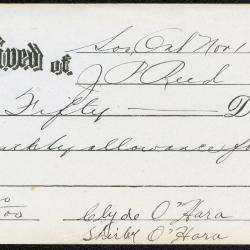 ived of Sos Cal Nov 1
J P Reed
Fifty D
allowance f
00
Clyde O'Hara
Shirley O'Hara